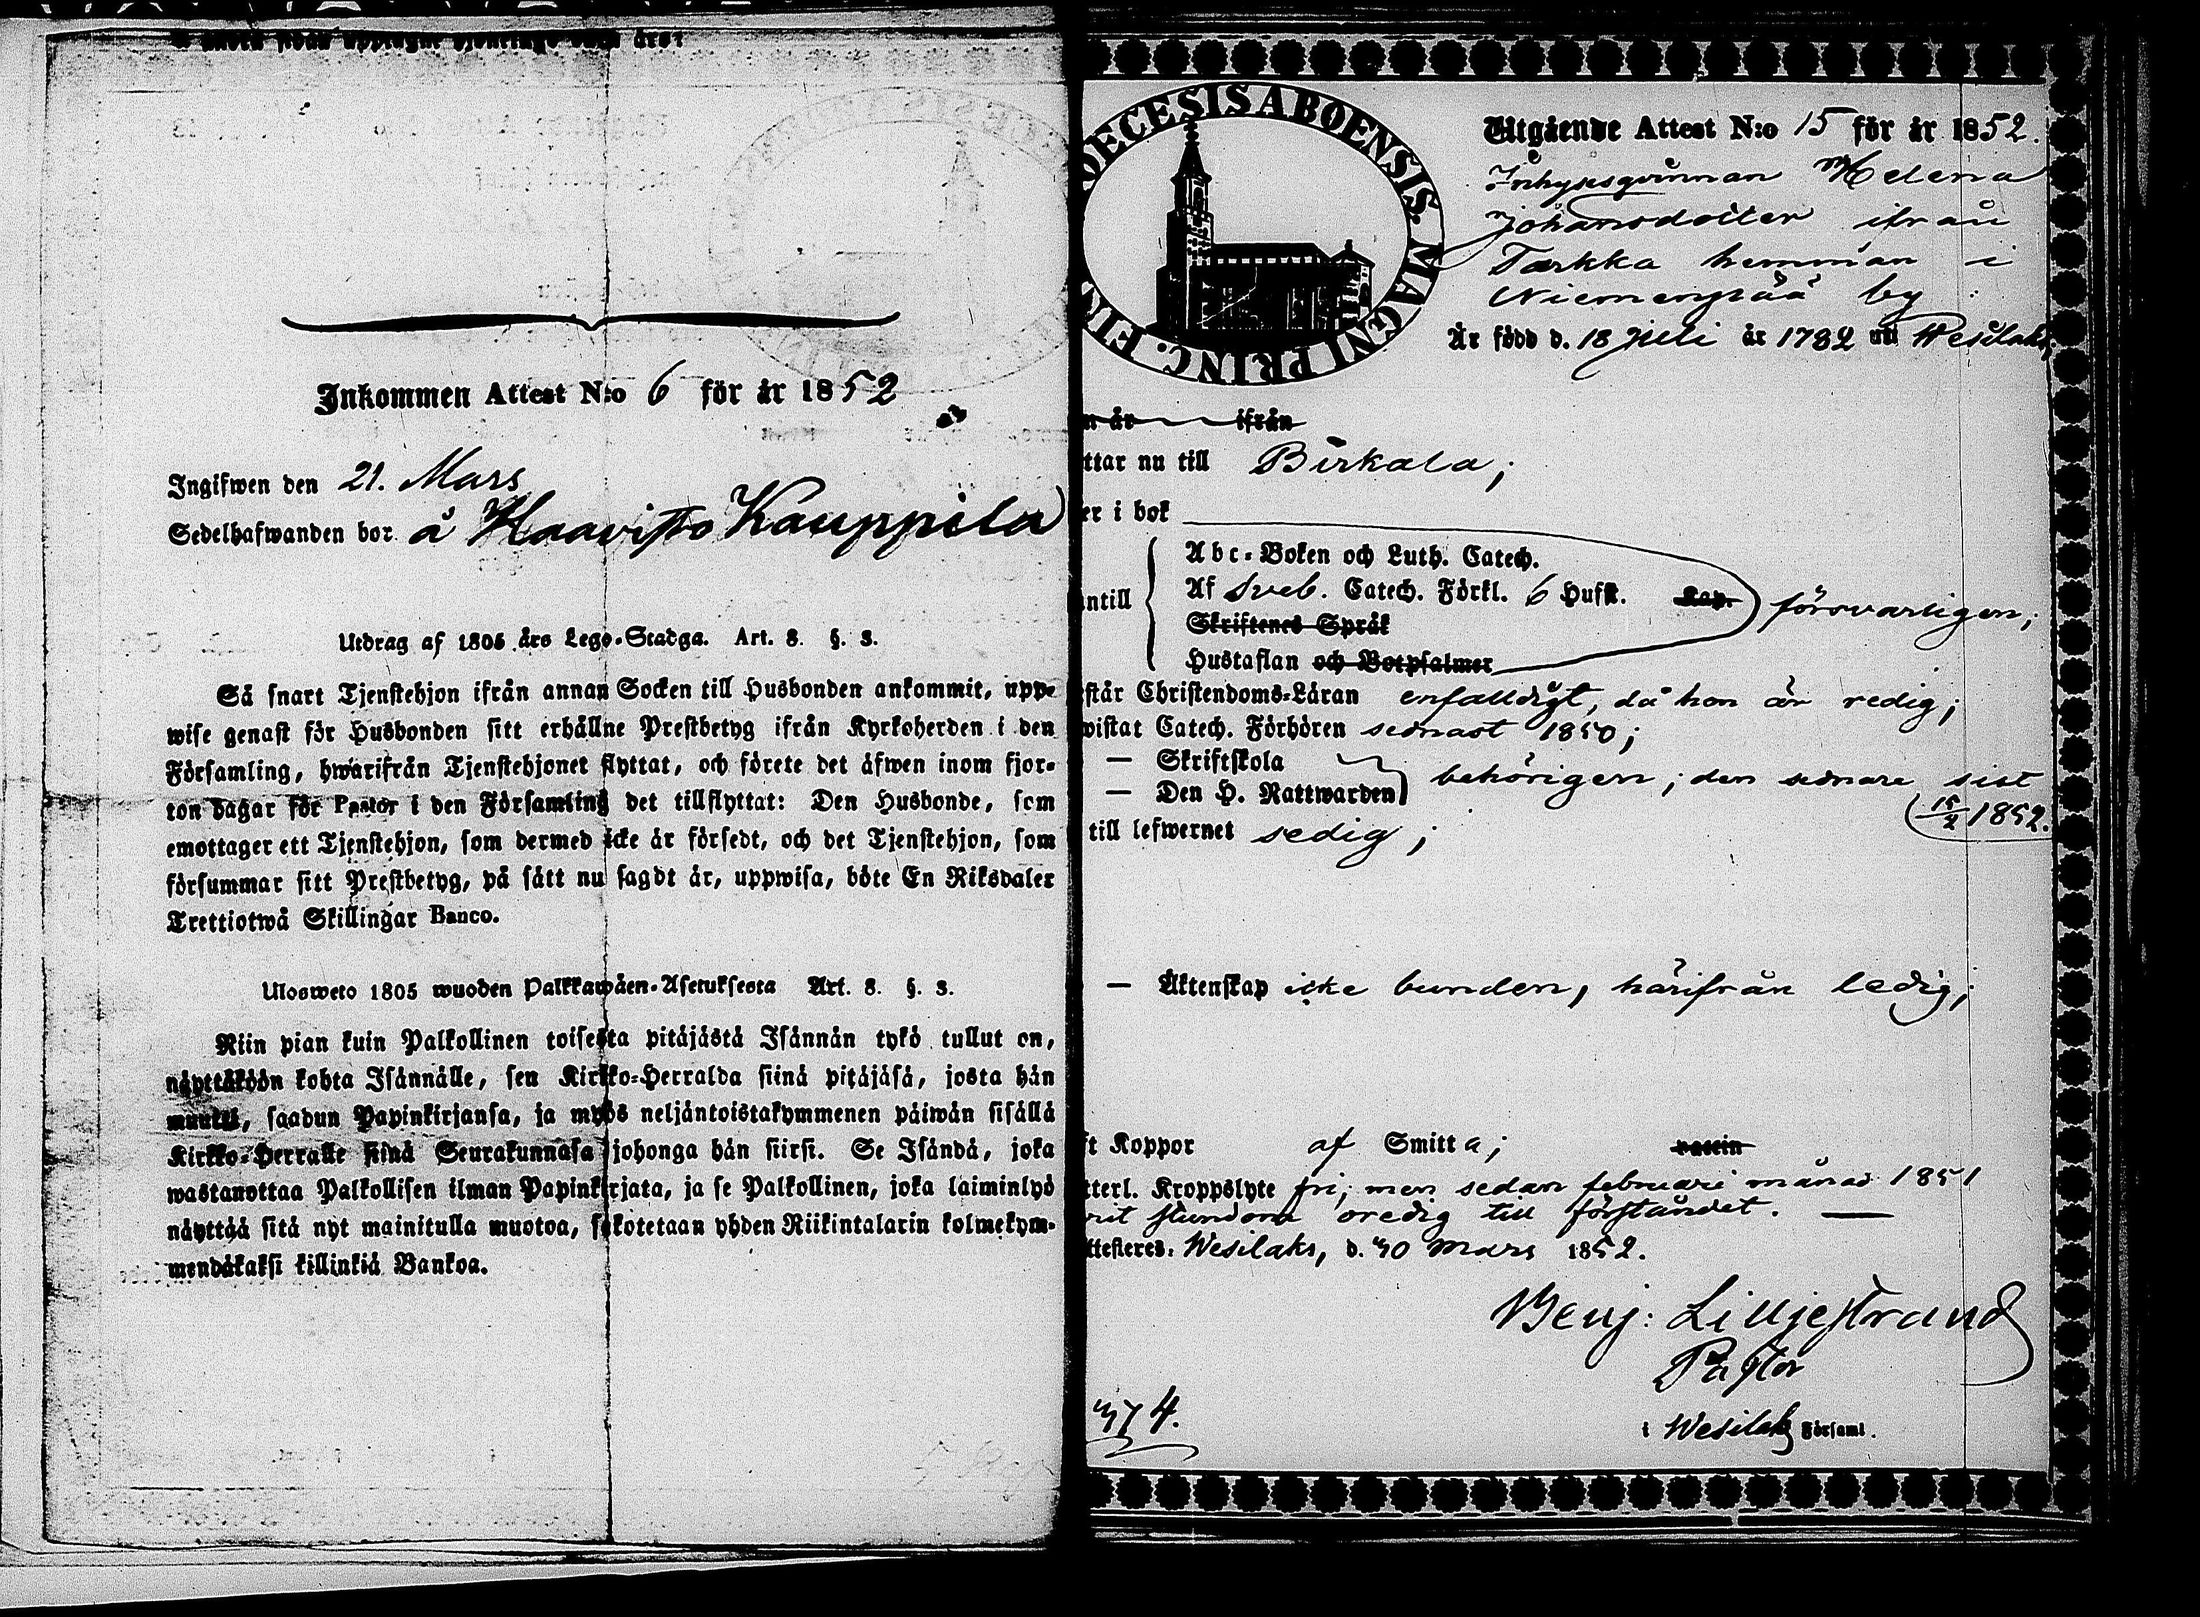 Inkommen Attest N:o 6 för år 1852
Ingifwen den 21. Mars
Sedelhafwanden bor å Haavisto Kauppila
Utdrag af 1805 års Lego-Stadga. Art. 8. §. 3.
Så snart Tjenstehjon ifrån annan Socken till Husbonden ankommit, upp-
wise genast för Husbonden sitt erhållne Prestbetyg ifrån Kyrkoherden i den
Församling, hwarifrån Tjenstehjonet flyttat, och förete det äfwen inom fjor-
ton dagar för Pastor i den Församling det tillflyttat: Den Husbonde, som
emottager ett Tjenstehjon, som dermed icke är försedt, och det Tjenstehjon, som
försummar sitt Prestbetyg, på sätt nu sagdt är, uppwisa, böte En Riksdaler
Trettiotwå Skillingar Banco.
Ulosweto 1805 wuoden Palkkawäen-Asetuksesta Art. 8. §. 3.
Niin pian kuin Palkollinen toisesta pitäjästä Isännän tykö tullut on,
näyttäköön kohta Isännälle, sen Kirkko-Herralda siinä pitäjäsä, josta hän
muutti, saadun Papinkirjansa, ja myös neljäntoistakymmenen päiwän sisällä
Kirkko-Herralle siinä Seurakunnasa johonga hän siirsi. Se Isändä, joka
wastanottaa Palkollisen ilman Papinkirjata, ja se Palkollinen, joka laiminlyö
näyttää sitä nyt mainitulla muotoa, sakotetaan yhden Riikintalarin kolmekym-
mendäkaksi killinkiä Bankoa.
DECESIS ABOENSIS. MAGNI PRINC. FIN
Utgående Attest N:o 15 för år 1852.
Inhysesqvinnan Helena
Johansdotter ifrån
Tarkka hemman i
Niemenpää by
Är född d. 18 Juli år 1782 uti Wesilaks,
n år ifrån
ttar nu till Birkala;
er i bok
Abc-Boken och Luth. Catech.
ntill Af Sveb. Catech. Förkl. 6 Hufst. Kap. försvarligen;
Skriftenes Språk
Hustaflan och Botpsalmer
står Christendoms-Läran enfaldigt, då hon är redig;
wistat Catech. Förhören sednast 1850;
— Skriftskola
— Den H. Nattwarden behörigen; den sednare sist
15/2 1852.
till lefwernet sedig;
— Äktenskap icke bunden, härifrån ledig;
ft Koppor af Smitta; vaccin
tterl. Kroppslyte fri; men sedan februari månad 1851
rit stundom oredig till förståndet. —
ttesteres: Wesilaks, d. 10 Mars 1852.
Benj: Lilljestrand
Pastor
i Wesilaks Församl.
374.